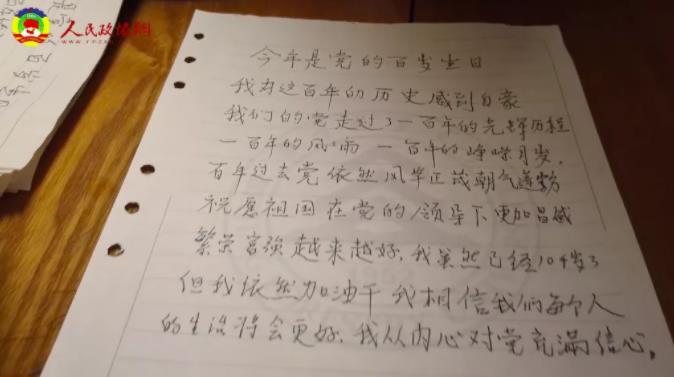 人民政协网
今年是党的百岁生日
我对这百年的历史感到自豪
我们的党走过了一百年的光辉历程
一百年的风雨 一百年的峥嵘月岁,
百年过去党依然风华正茂朝气蓬勃
祝愿祖国在党的领导下更加昌盛
繁荣富强越来越好.我虽然已经104岁了
但我依然加油干 我相信我们每个人
的生活将会更好.我从内心对党充满信心。